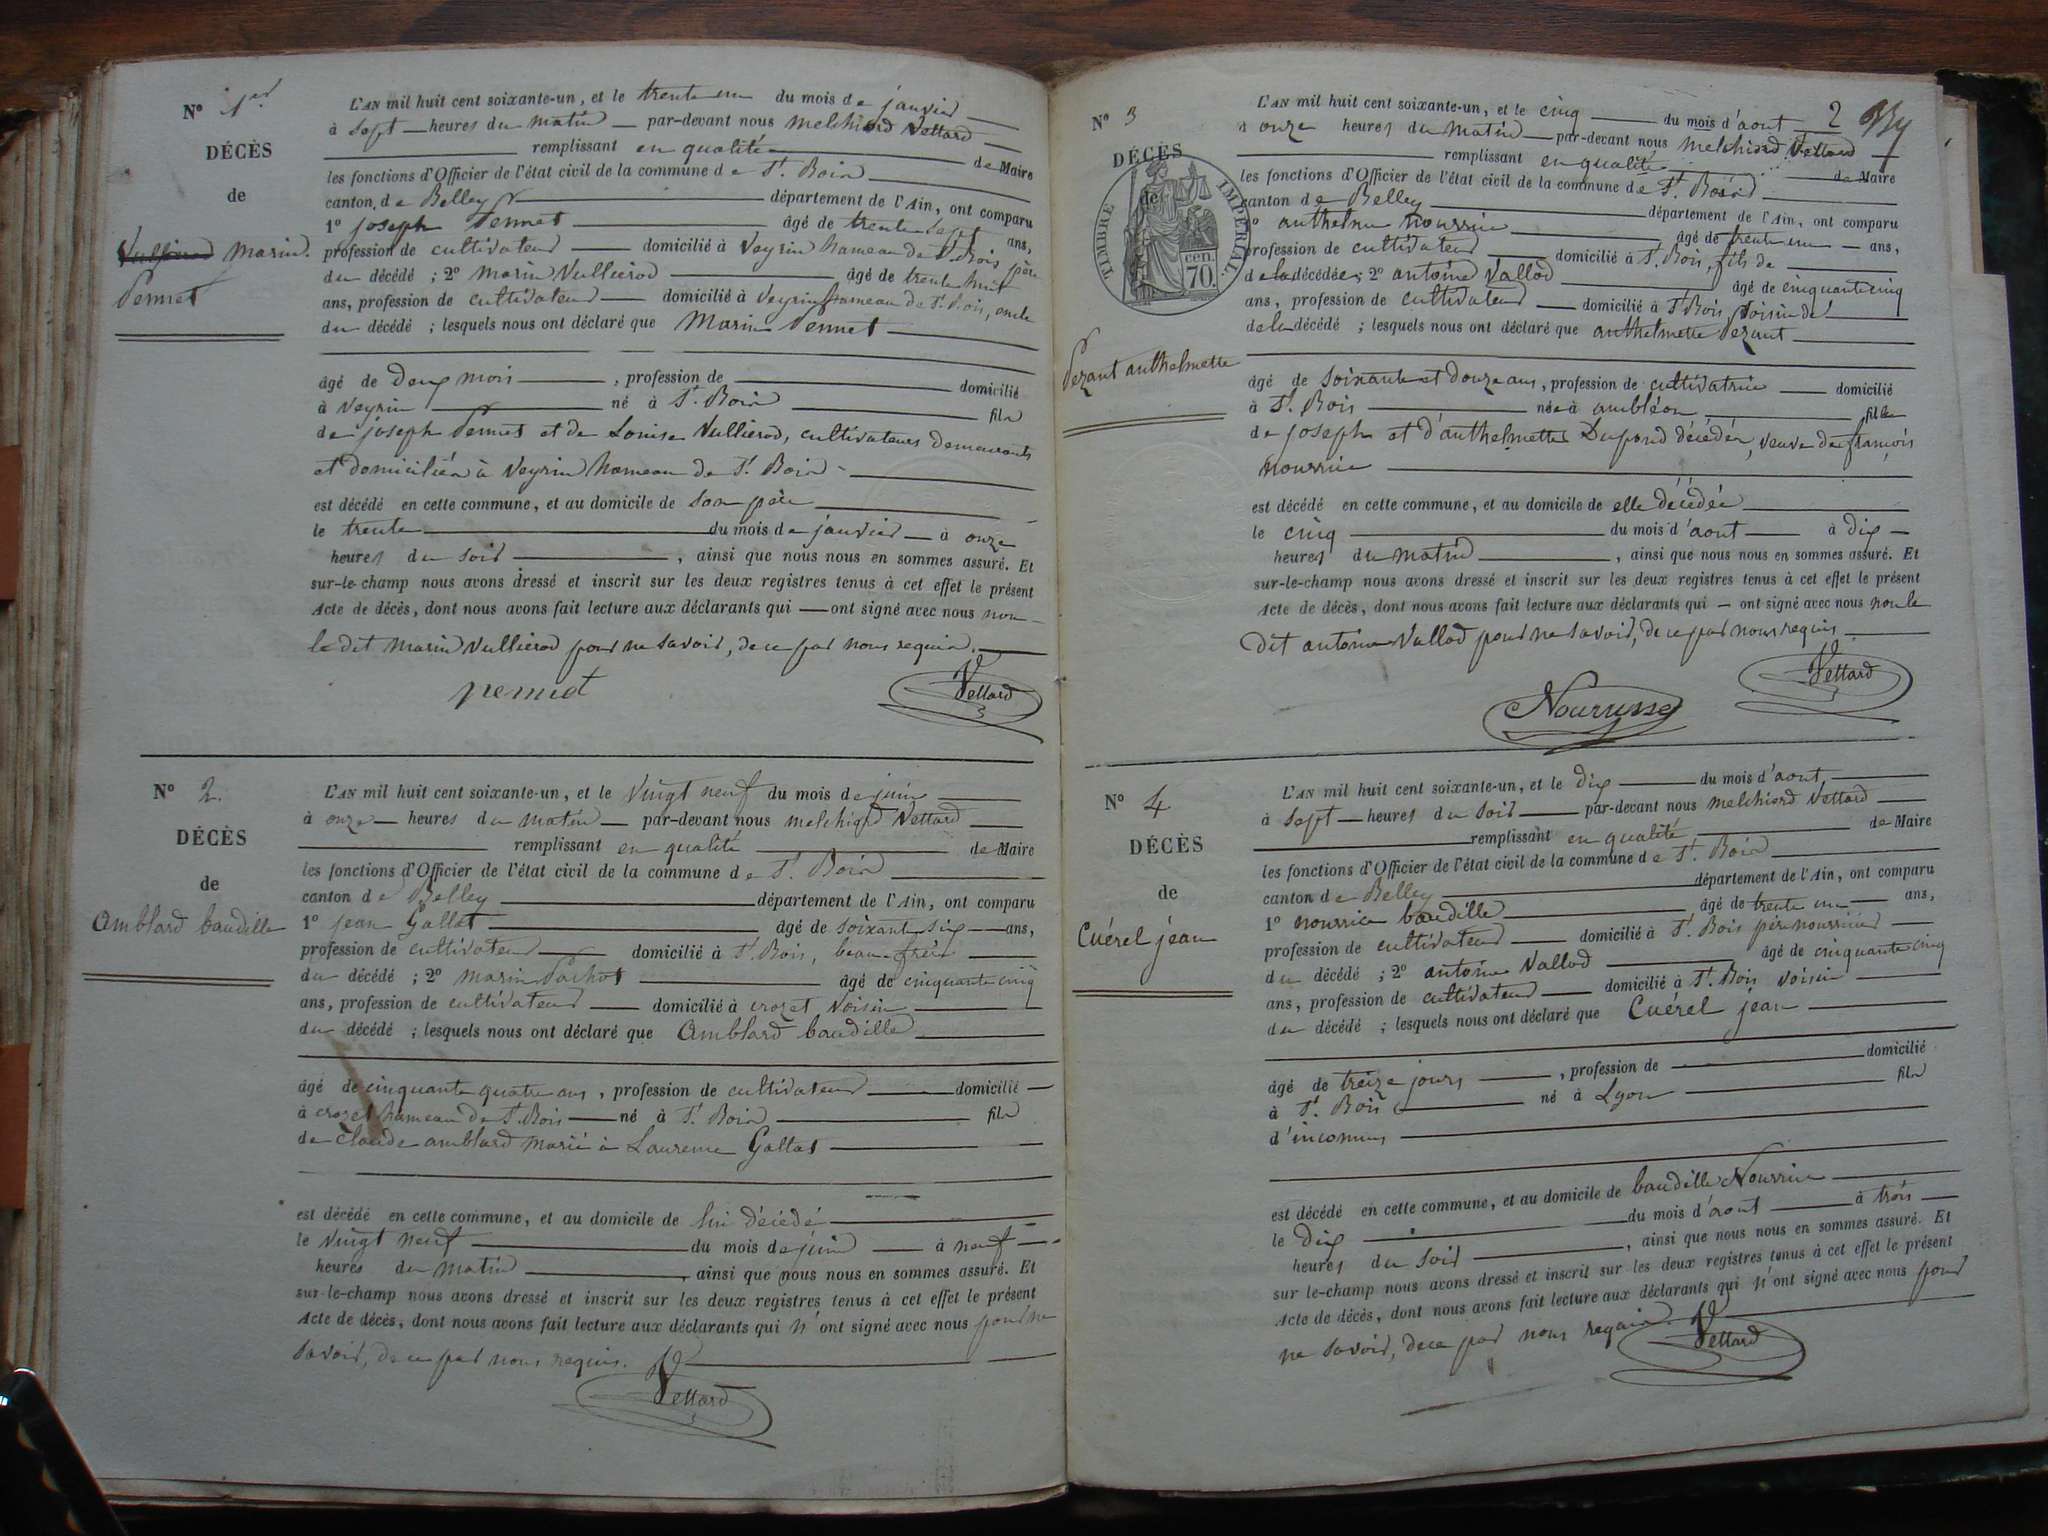 N° 1er
DÉCÈS
de
Vullierod Marin
Pennet
L'AN mil huit cent soixante-un, et le trente un du mois de janvier
à Sept heures du matin par-devant nous melchiord Vettard
remplissant en qualité de Maire
les fonctions d'Officier de l'état civil de la commune de St. Bois
canton de Belley département de l'Ain, ont comparu
1° joseph Pennet âgé de trente Sept ans,
profession de cultivateur domicilié à Veyrin hameau de St. Bois père
du décédé ; 2° Marin Vullierod âgé de trente huit
ans, profession de cultivateur domicilié à Veyrin hameau de St. Bois, oncle
du décédé ; lesquels nous ont déclaré que Marin Pennet
âgé de Deux mois , profession de domicilié
à Veyrin né à St. Bois fils
de joseph Pennet et de Louise Vullierod, cultivateurs demeurants
et domiciliés à Veyrin hameau de St. Bois
est décédé en cette commune, et au domicile de Son père
le trente du mois de janvier à onze
heures du soir , ainsi que nous nous en sommes assuré. Et
sur-le-champ nous avons dressé et inscrit sur les deux registres tenus à cet effet le présent
Acte de décès, dont nous avons fait lecture aux déclarants qui ont signé avec nous non
le dit Marin Vullierod pour ne savoir, de ce par nous requis.
pennet Vettard
N° 2.
DÉCÈS
de
Amblard baudille
L'AN mil huit cent soixante-un, et le Vingt neuf du mois de juin
à onze heures du matin par-devant nous melchiord Vettard
remplissant en qualité de Maire
les fonctions d'Officier de l'état civil de la commune de St. Bois
canton de Belley département de l'Ain, ont comparu
1° jean Gallat âgé de soixante six ans,
profession de cultivateur domicilié à St. Bois, beau frère
du décédé ; 2° Marin Pachot âgé de cinquante cinq
ans, profession de cultivateur domicilié à crozet Voisin
du décédé ; lesquels nous ont déclaré que Amblard baudille
âgé de cinquante quatre ans , profession de cultivateur domicilié
à crozet hameau de St. Bois né à St. Bois fils
de claude amblard marié à Laurence Gallat
est décédé en cette commune, et au domicile de lui décédé
le Vingt neuf du mois de juin à neuf
heures du matin , ainsi que nous nous en sommes assuré. Et
sur-le-champ nous avons dressé et inscrit sur les deux registres tenus à cet effet le présent
Acte de décès, dont nous avons fait lecture aux déclarants qui n'ont signé avec nous pour ne
savoir, de ce par nous requis.
Vettard
2
N° 3
DÉCÈS
de
TIMBRE IMPÉRIAL
70 cen.
Pezant anthelmette
L'AN mil huit cent soixante-un, et le cinq du mois d'aout
à onze heures du matin par-devant nous melchiord Vettard
remplissant en qualité de Maire
les fonctions d'Officier de l'état civil de la commune de St. Bois
canton de Belley département de l'Ain, ont comparu
1° anthelme nourrice âgé de trente un ans,
profession de cultivateur domicilié à St. Bois, fils de
de la décédée ; 2° antoine Vallod âgé de cinquante cinq
ans, profession de cultivateur domicilié à St Bois Voisin de
de la décédé ; lesquels nous ont déclaré que anthelmette Pezant
âgé de soixante et douze ans, profession de cultivatrice domicilié
à St. Bois née à ambléon fille
de joseph et d'anthelmette Dupond décédés, veuve de françois
nourrice
est décédé en cette commune, et au domicile de elle décédée
le cinq du mois d'aout à dix
heures du matin , ainsi que nous nous en sommes assuré. Et
sur-le-champ nous avons dressé et inscrit sur les deux registres tenus à cet effet le présent
Acte de décès, dont nous avons fait lecture aux déclarants qui ont signé avec nous non le
dit antoine Vallod pour ne savoir, de ce par nous requis
Vettard
N° 4
DÉCÈS
de
Cuérel jean
L'AN mil huit cent soixante-un, et le dix du mois d'aout
à Sept heures du soir par-devant nous melchiord Vettard
remplissant en qualité de Maire
les fonctions d'Officier de l'état civil de la commune de St. Bois
canton de Belley département de l'Ain, ont comparu
1° nourrice baudille âgé de trente un ans,
profession de cultivateur domicilié à St. Bois père nourricier
du décédé ; 2° antoine Vallod âgé de cinquante cinq
ans, profession de cultivateur domicilié à St. Bois voisin
du décédé ; lesquels nous ont déclaré que Cuérel jean
âgé de treize jours , profession de domicilié
à St. Bois né à Lyon fils
d'inconnus
est décédé en cette commune, et au domicile de baudille Nourrice
le dix du mois d'aout à trois
heures du soir , ainsi que nous nous en sommes assuré. Et
sur le-champ nous avons dressé et inscrit sur les deux registres tenus à cet effet le présent
Acte de décès, dont nous avons fait lecture aux déclarants qui n'ont signé avec nous pour
ne savoir, de ce par nous requis.
Vettard